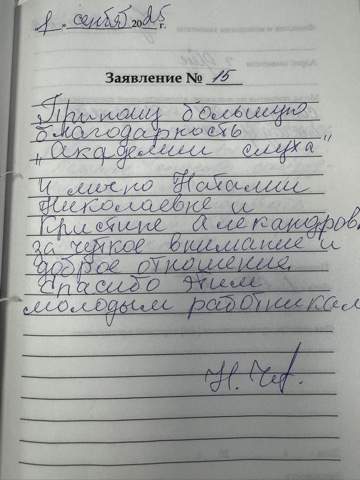 1 " сентяб 2025 г.
Заявление № 15
"Приношу большую
благодарность
"Академии слуха"
и лично Наталии
Николаевне и
Кристине Александров
за чуткое внимание и
доброе отношение.
Спасибо этим
молодым работникам